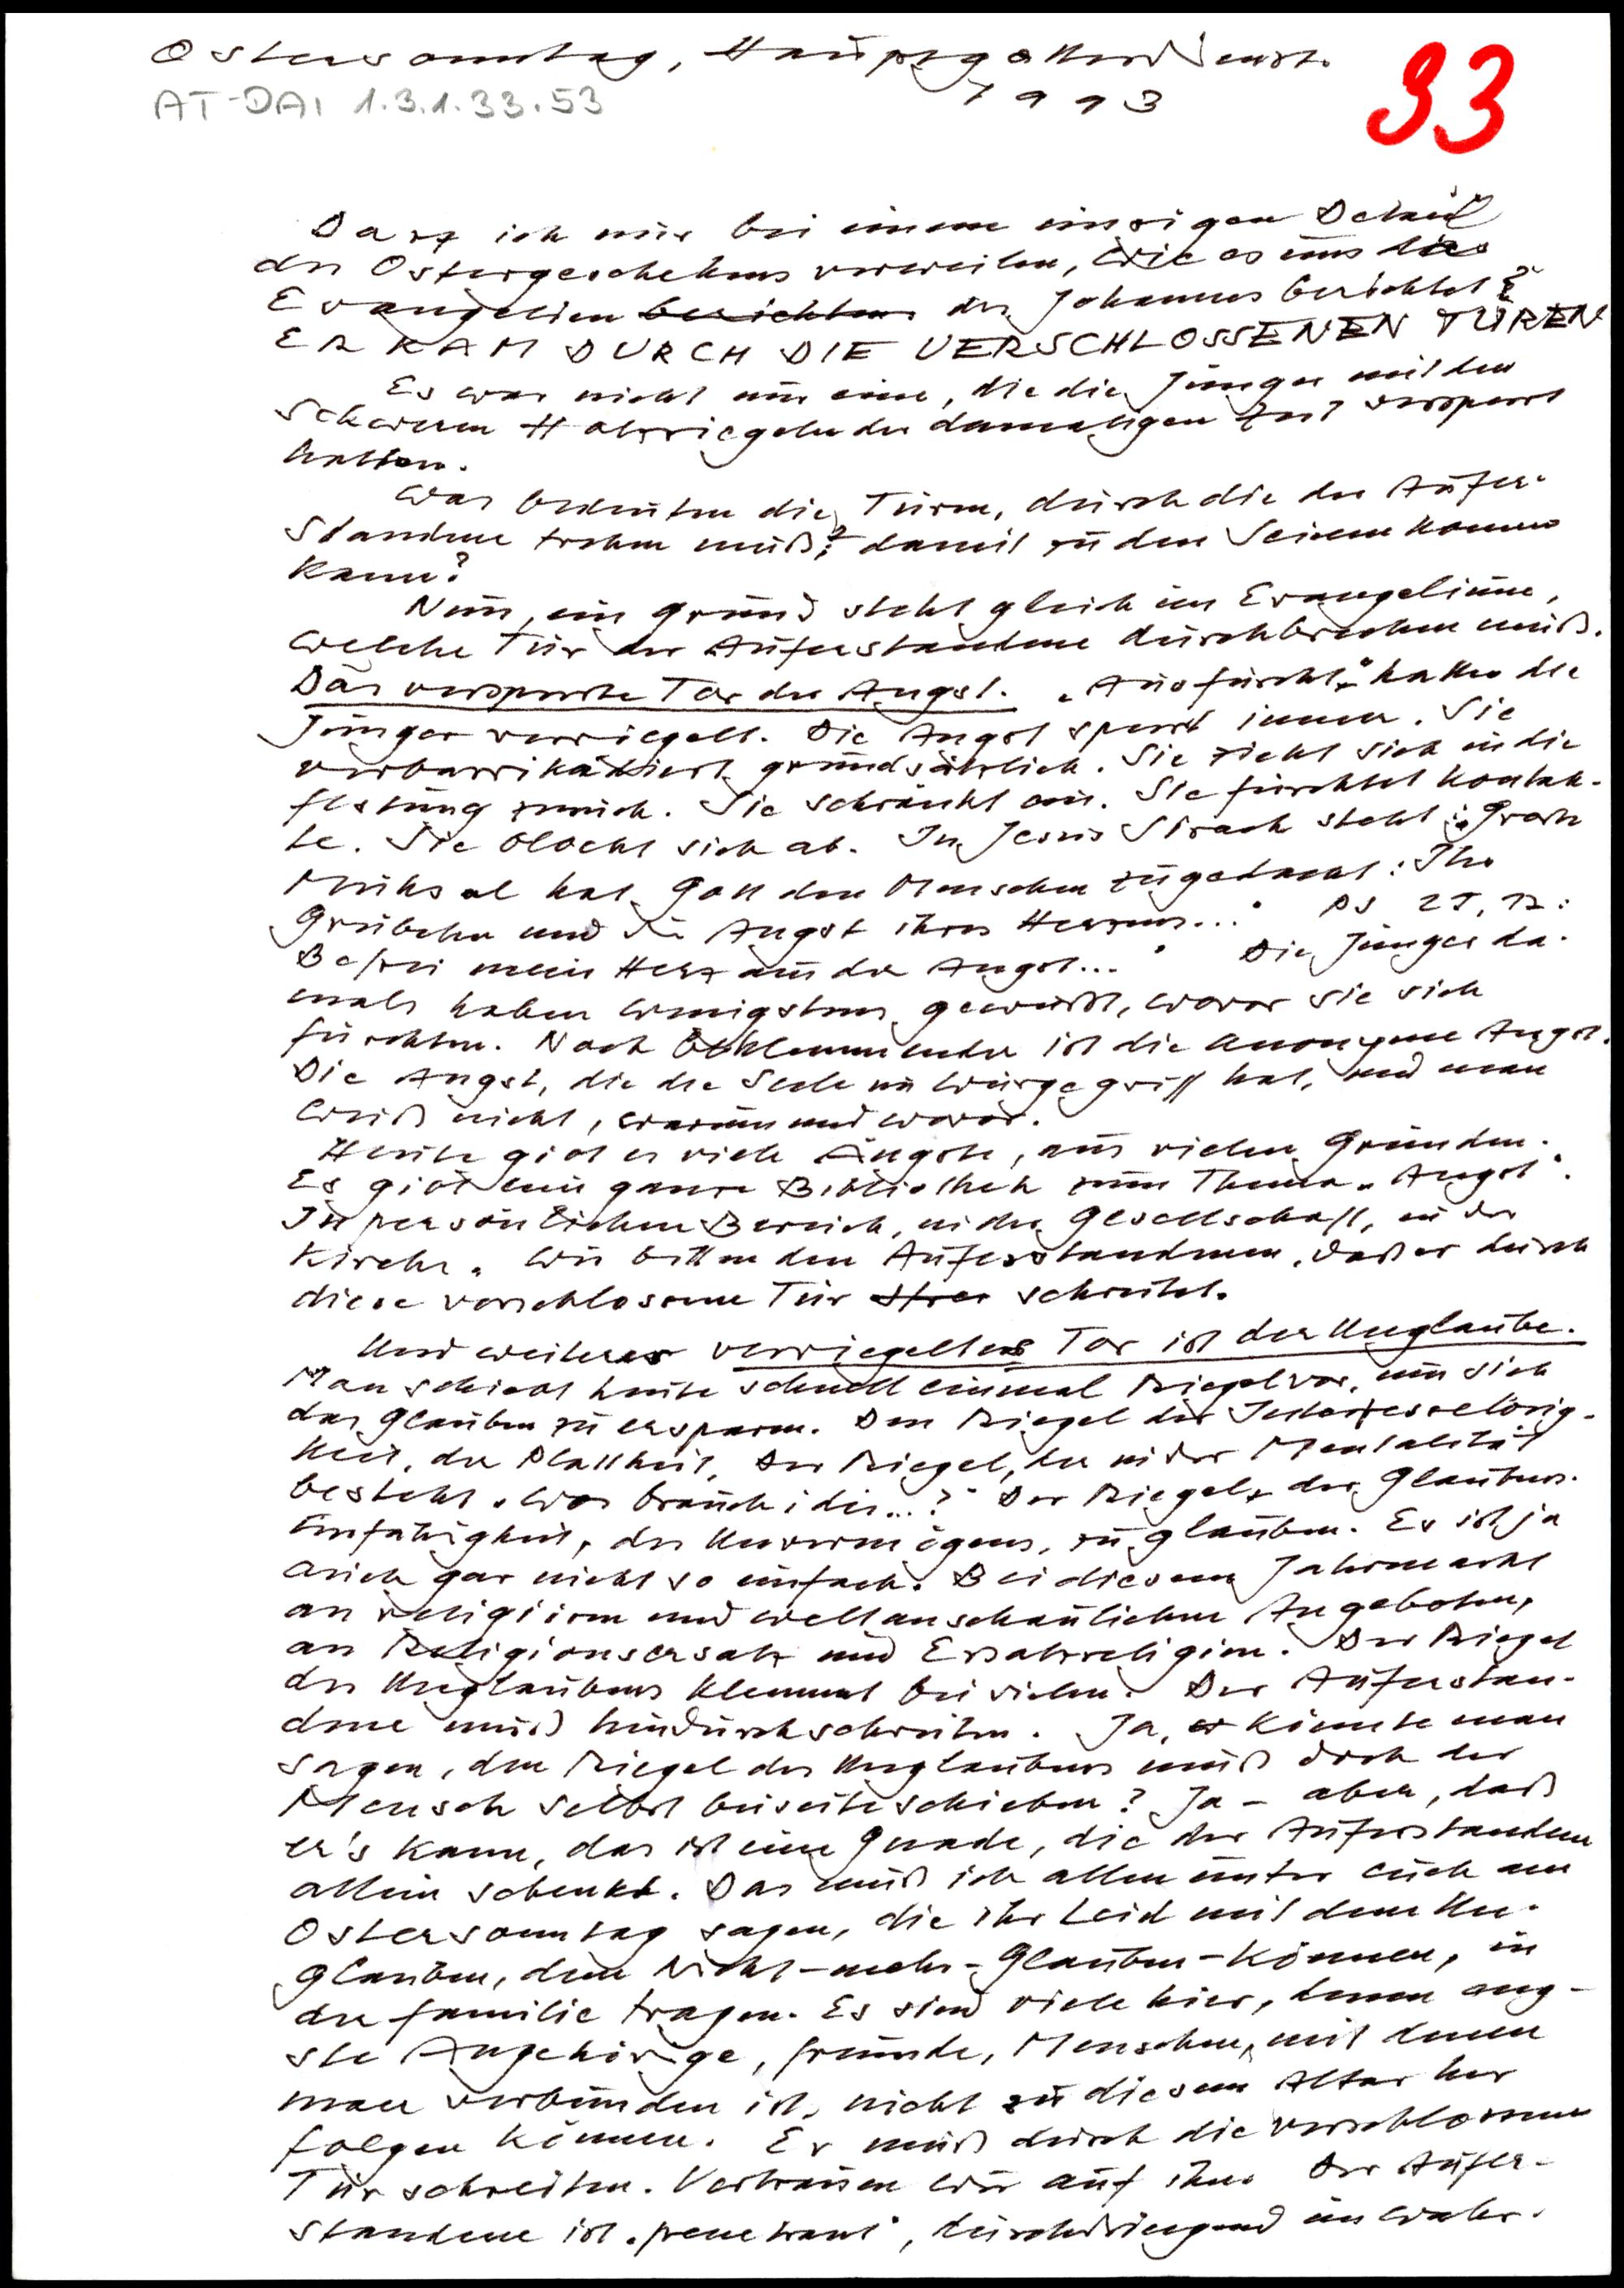 Ostersonntag, Hauptgottesdienst.
AT-DAI 1.3.1.33.53
1993
93
Darf ich nur bei einem einzigen Detail
des Ostergeschehens verweilen, wie es uns das
Evangelium berichten des Johannes berichtet?
ER KAM DURCH DIE VERSCHLOSSENEN TÜREN
Es war nicht nur eine, die die Jünger mit den
schweren Holzriegeln der damaligen Zeit versperrt
hatten.
Was bedeuten die Türen, durch die der Aufer-
standene treten muß, damit zu den Seinen kommen
kann?
Nun, ein Grund steht gleich im Evangelium,
welche Tür der Auferstandene durchbrechen muß.
Das versperrte Tor der Angst. "Aus Furcht" hatten die
Jünger verriegelt. Die Angst sperrt immer. Sie
verbarrikadiert grundsätzlich. Sie zieht sich in die
Festung zurück. Sie schränkt ein. Sie fürchtet Kontak-
te. Sie blockt sich ab. In Jesus Sirach steht: "Große
Mühsal hat Gott den Menschen zugedacht: Ihr
Grübeln und die Angst ihres Herzens..." Ps 25, 17:
Befrei mein Herz aus der Angst..." Die Jünger da-
mals haben wenigstens gewußt, wovor sie sich
fürchten. Noch beklemmender ist die anonyme Angst.
Die Angst, die die Seele im Würgegriff hat, und man
weiß nicht, warum und wovor.
Heute gibt es viele Ängste, aus vielen Gründen.
Es gibt eine ganze Bibliothek zum Thema "Angst".
Im persönlichen Bereich, in der Gesellschaft, in der
Kirche. Wir bitten den Auferstandenen, daß er durch
diese verschlossene Tür schreitet.
Und weiteres verriegeltes Tor ist der Unglaube.
Man schiebt heute schnell einmal Riegel vor, um sich
das Glauben zu ersparen. Den Riegel der Interesselosig-
keit, der Plattheit, Der Riegel, der in der Mentalität
besteht "Was brauch i des...?" Der Riegel der Glaubens-
unfähigkeit, des Unvermögens, zu glauben. Es ist ja
auch gar nicht so einfach. Bei diesem Jahrmarkt
an religiösen und weltanschaulichen Angeboten,
an Religionsersatz und Ersatzreligion. Der Riegel
des Unglaubens klemmt bei vielen. Der Auferstan-
dene muß hindurchschreiten. Ja, könnte man
sagen, den Riegel des Unglaubens muß doch der
Mensch selbst beiseiteschieben? Ja - aber, daß
er's kann, das ist eine Gnade, die der Auferstandene
allein schenkt. Das muß ich allen unter euch am
Ostersonntag sagen, die ihr Leid mit dem Un-
glauben, dem Nicht-mehr-Glauben-Können, in
der Familie tragen. Es sind viele hier, denen eng-
ste Angehörige, Freunde, Menschen, mit denen
man verbunden ist, nicht zu diesem Altar her
folgen können. Er muß durch die verschlossene
Tür schreiten. Vertrauen wir auf ihn. Der Aufer-
standene ist "penetrant", durchdringend im wahr-